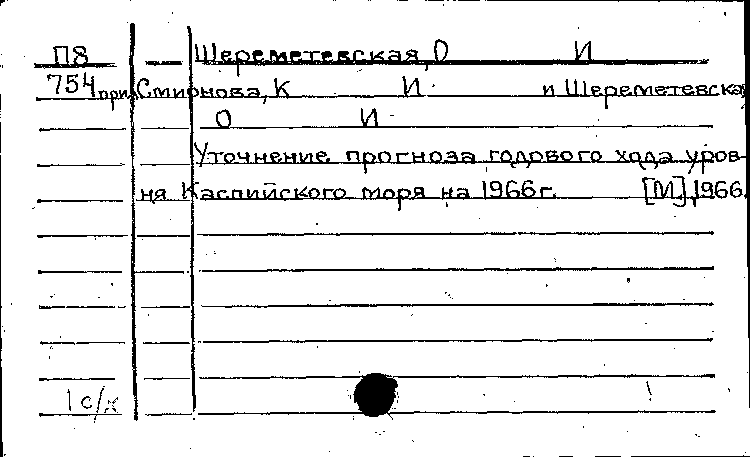 П8 — Шереметевская, О И
754 при Смирнова, К И. и Шереметевская
О И.
Уточнение прогноза годового хода уров-
ня Каспийского моря на 1966 г. [М], 1966.
1 с/к